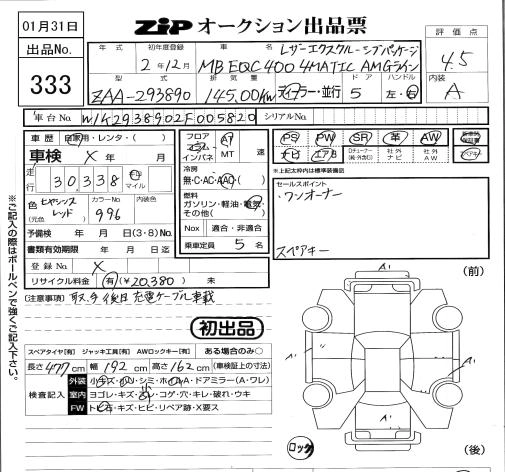 01月31日
ZIP オークション出品票
出品No.
333
評価点
4.5
内装
A
年式 初年度登録 車名
2年12月 MB EQC 400 4MATIC AMGライン
レザーエクスクルーシブパッケージ
型式 排気量 ドア ハンドル
ZAA-293890 145.00Kw ディーラー・並行 5 左・右
車台No. W1K2938902F005820 シリアルNo.
車歴 自家用・レンタ・( )
車検 X年 月
走行 30,338 Km マイル
色 (元色) ヒヤシンスレッド カラーNo. 996 内装色
予備検 年 月 日(3・8)No.
書類有効期限 年 月 日迄
登録No. X
リサイクル料金 有(¥20,380) 未
フロア コラム インパネ AT MT 速
冷房
無・C・AC・AAC
燃料
ガソリン・軽油・電気・その他( )
Nox 適合・非適合
乗車定員 5 名
PS PW SR 革 AW
ナビ エアB TVチューナー (純・外含む) 社外ナビ 社外AW
※上記太枠内は標準装備品
セールスポイント
・ワンオーナー
スペアキー
(注意事項) 取、手後日 充電ケーブル車載
初出品
スペアタイヤ[有] ジャッキ工具[有] AWロックキー[有] ある場合のみ○
長さ477cm 幅192cm 高さ162cm (車検証上の寸法)
検査記入
外装 小キズ・小ソリ・シミ・小A・ドアミラー(A・ワレ)
室内 ヨゴレ・キズ・スレ・コゲ・穴・キレ・破れ・ウキ
FW トビ石・キズ・ヒビ・リペア跡・X要ス
※ご記入の際はボールペンで強くご記入下さい。
(前)
A'
A'
A'
A'
A'
ロック
(後)